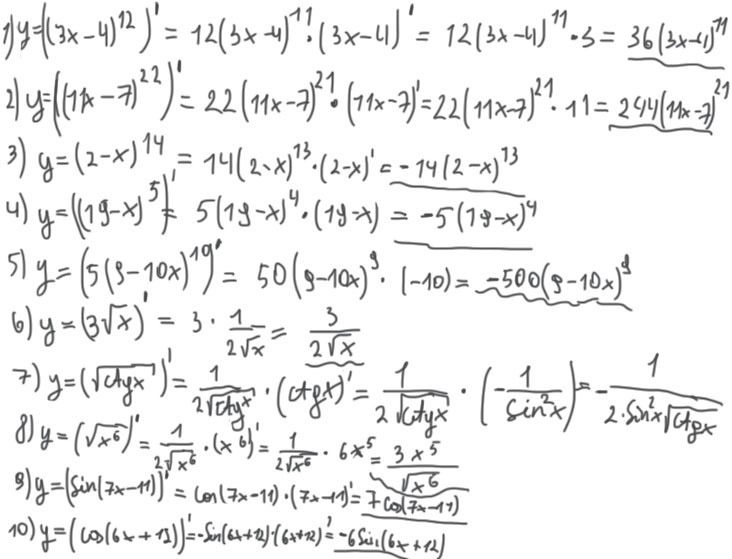 1) y=((3x-4)^12)' = 12(3x-4)^11·(3x-4)' = 12(3x-4)^11·3 = 36(3x-4)^11
2) y=((11x-7)^22)' = 22(11x-7)^21·(11x-7)' = 22(11x-7)^21·11 = 244(11x-7)^21
3) y=(2-x)^14 = 14(2-x)^13·(2-x)' = -14(2-x)^13
4) y=((19-x)^5)' = 5(19-x)^4·(19-x) = -5(19-x)^4
5) y=(5(9-10x)^10)' = 50(9-10x)^9·(-10) = -500(9-10x)^9
6) y=(3√x)' = 3·1/(2√x) = 3/(2√x)
7) y=(√ctgx)' = 1/(2√ctgx)·(ctgx)' = 1/(2√ctgx)·(-1/sin²x) = -1/(2·sin²x√ctgx)
8) y=(√x^6)' = 1/(2√x^6)·(x^6)' = 1/(2√x^6)·6x^5 = 3x^5/√x^6
9) y=(sin(7x-11))' = cos(7x-11)·(7x-11)' = 7cos(7x-11)
10) y=(cos(6x+12))' = -sin(6x+12)·(6x+12)' = -6sin(6x+12)